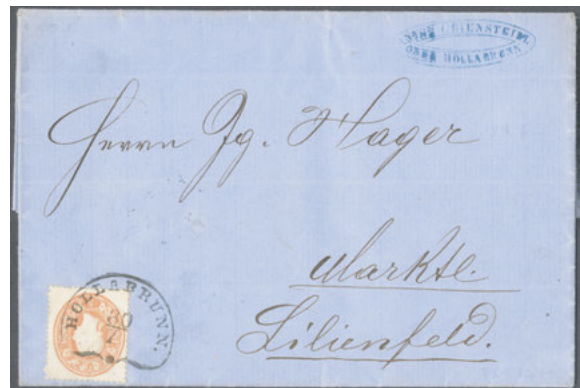 OBER HOLLABRUNN
Herrn Jg. Hager
Marktl.
Lilienfeld.
HOLLABRUNN.
30